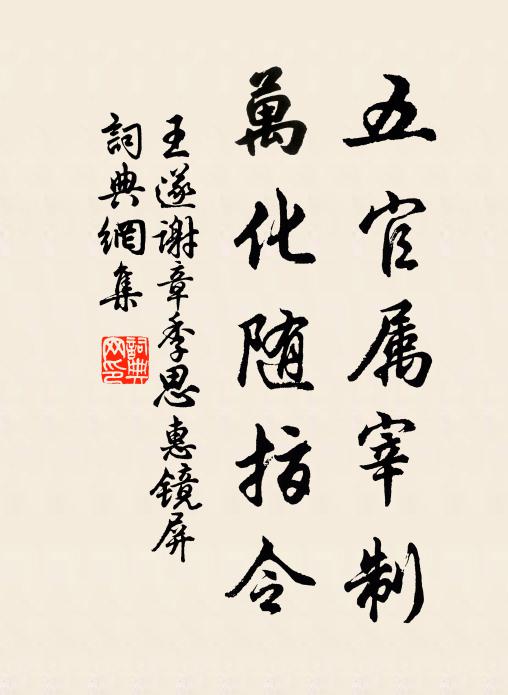 五官属宰制
萬化随指令
王遂谢章季思惠鏡屏
詞典網集
詞典
网印